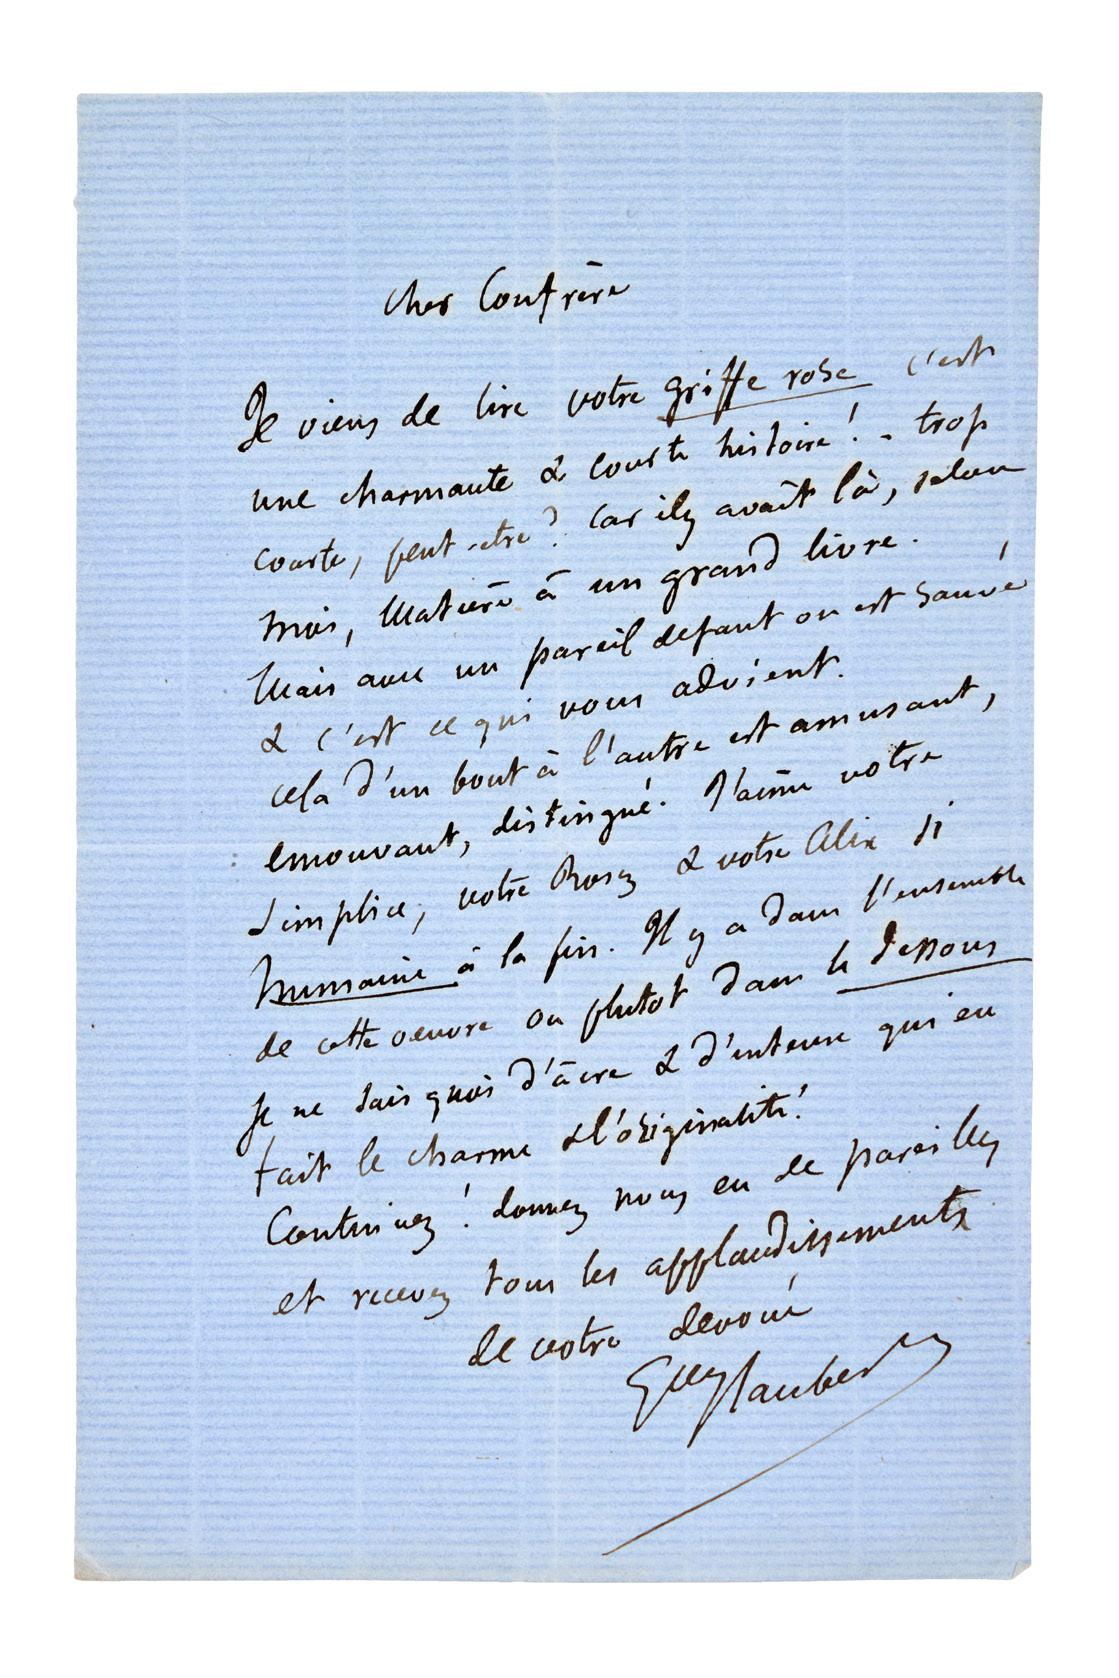 cher Confrère
Je viens de lire votre griffe rose c'est
une charmante & courte histoire! - trop
courte, peut-etre? Car il y avait là, selon
moi, Matière à un grand livre.
Mais avec un pareil defaut on est sauvé
& c'est ce qui vous advient.
cela d'un bout à l'autre est amusant,
emouvant, distingué. J'aime votre
simplice, votre Rosey & votre Alix si
humaine à la fin. Il y a dans l'ensemble
de cette oeuvre ou plutot dans le dessous
Je ne sais quoi d'âcre & d'intense qui en
fait le charme & l'originalité!
Continuez! donnez nous en de pareilles
et recevez tous les applaudissements
de votre devoué
Gve Flaubert